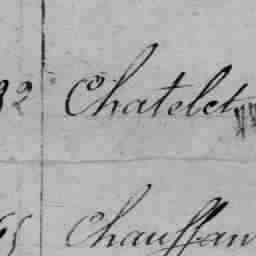 32 Chatelet
65 Chauffan